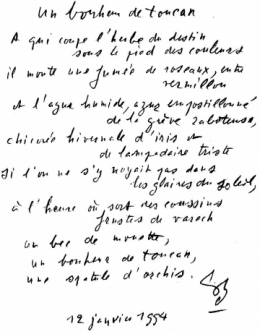 Un bonheur de toucan
A qui coupe l'herbe du destin
sous le pied des couleurs
il monte une fumée de roseaux, entre
vermillon
et l'aqua humide, azur
de la grève raboteuse,
chicorée hivernale d'iris et
de lampadaire triste
si l'on ne s'y noyait pas dans
les glaires du soleil,
à l'heure où sort des coussins
frustes de varech
un bec de mouette,
un bonheur de toucan,
une spatule d'orchis.
12 janvier 1994